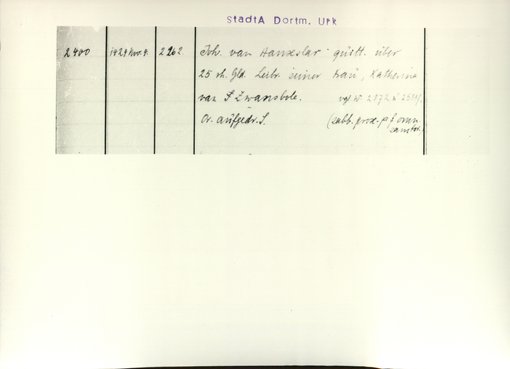 StadtA Dortm. Urk
2400 1429 Nov. 9. 2262 Joh. van Hanxelar quitt. über
25 rh. Gld. Leibr. seiner Frau, Katherine
van Zwansbole. vgl. 2172
Or. aufgedr. S. (sabb. prox. p. f. omn.
sanctor.)